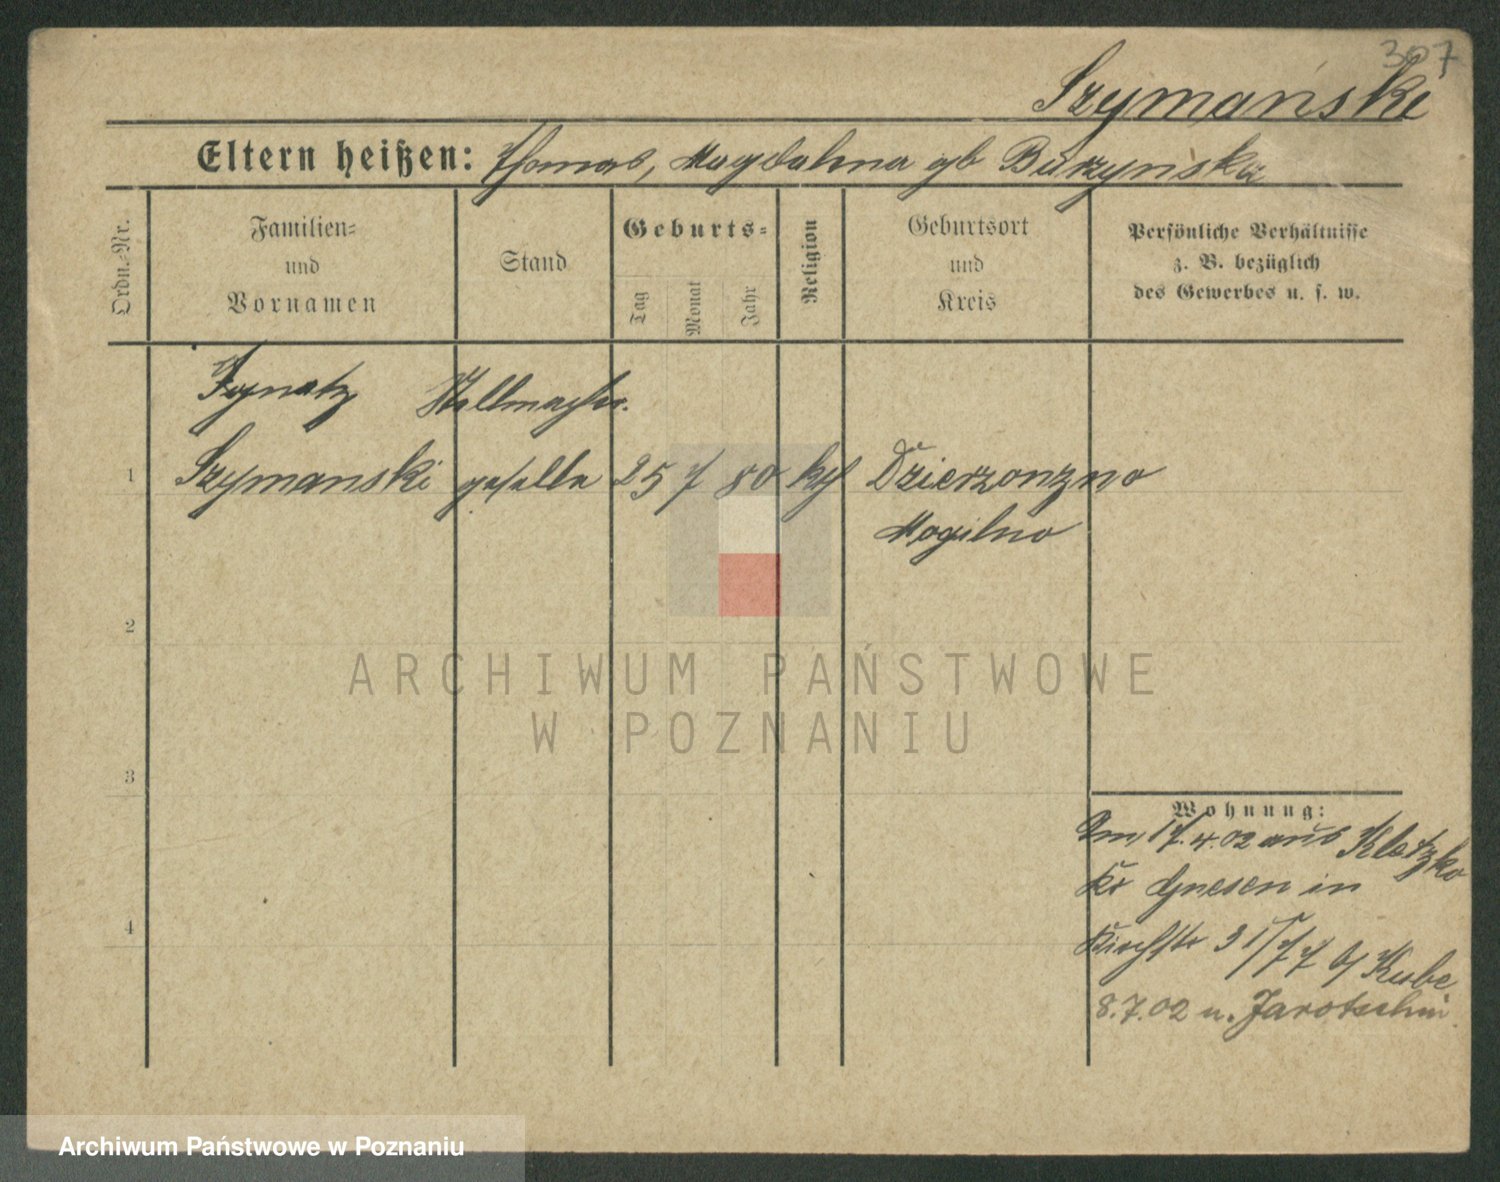 307
Szymański
Eltern heißen: Thomas, Magdalena gb Burzyńska
Ordn.-Nr.
Familien-
und
Vornamen
Stand
Geburts-
Tag
Monat
Jahr
Religion
Geburtsort
und
Kreis
Persönliche Verhältnisse
z. B. bezüglich
des Gewerbes u. s. w.
Ignatz Stellmacher
1 Szymanski geselle 25 7 80 kth Dzierzonzno
Mogilno
2
3
4
Wohnung:
Am 17.4.02 aus Kletzko
Kr Gnesen in
Kirchstr 31/77 b/ Kube
8.7.02 n. Jarotschin
ARCHIWUM PAŃSTWOWE
W POZNANIU
Archiwum Państwowe w Poznaniu